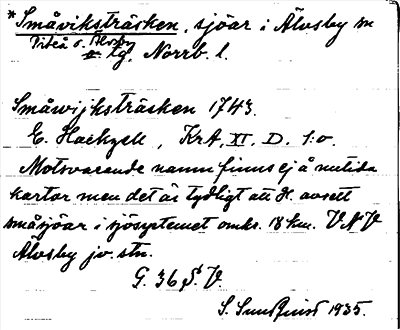 *Småviksträsken, sjöar i Älvsby sn
Piteå o. Älvsby
tg. Norrb. l.
Småwijksträsken 1743.
E. Hackzell, KrA, XI. D. 1:o.
Motsvarande namn finns ej å nutida
kartor men det är tydligt att H. avsett
småsjöar i sjösystemet omkr. 18 km. VNV
Älvsby jv. stn.
G. 36 S. V.
S. Sundquist 1935.